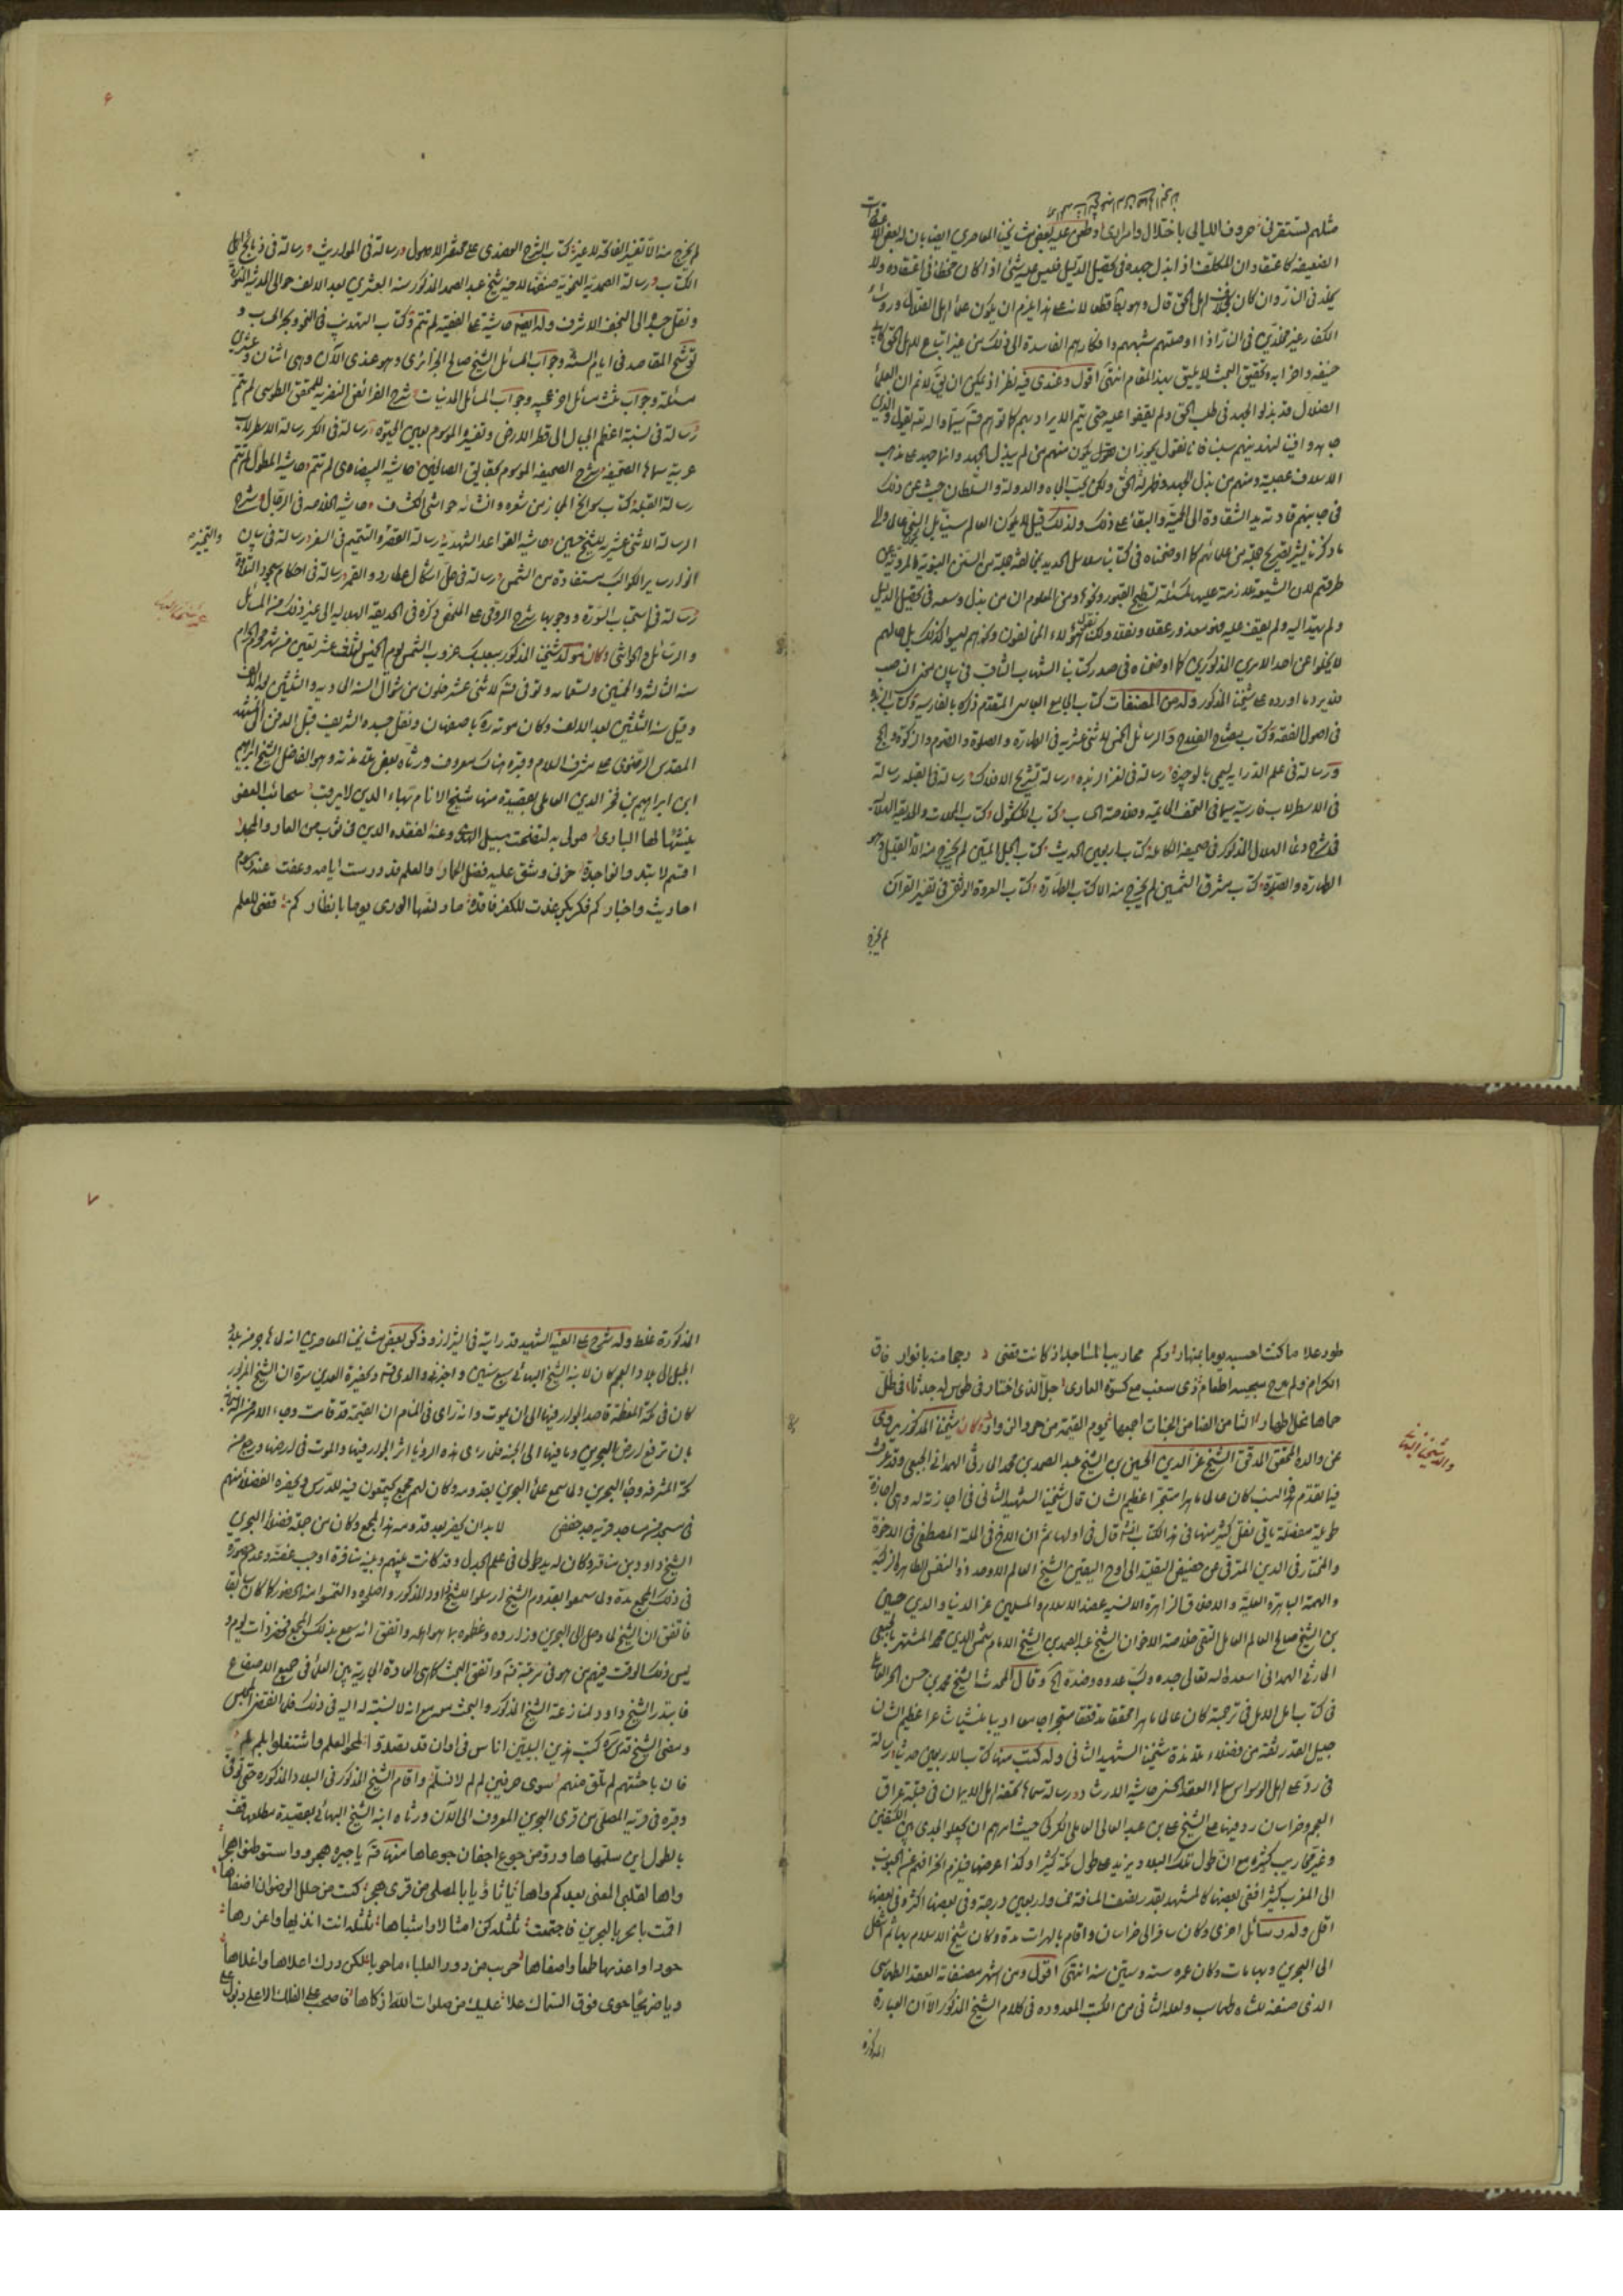 مثلهم لتستقرني حروف الليالي باختلال وامراري اوطعن عليه بعض مشايخنا المعاصرين ايضا بان له بعض
الضعيفة كاعتقاد ان المكلف اذا بذل جهده في تحصيل الدليل فليس عليه شيء اذا كان مخطئا في اعتقاده ولا
يخلد في النار وان كان بخلاف اهل الحق قال وهو بط قطعا لانه على هذا يلزم ان يكون علماء اهل الضلال ورؤساء
الكفار غير مخلدين في النار اذا اوصلتهم شبههم وافكارهم الفاسدة الى ذلك من غير اتباع لاهل الحق كابي
حنيفه واضرابه وتحقيق البحث لا يليق بهذا المقام انتهى اقول وعندي فيه نظر اذ يمكن ان يق لا نم ان العلماء
الضلال قد بذلوا الجهد في طلب الحق ولم يقفوا عليه حتى يتم الايراد بهم والله تعالى يقول والذين
جاهدوا فينا لنهدينهم سبلنا فانا نقول يجوز ان يكون منهم من لم يبذل الجهد وانما جمد على مذهب
الاسلاف عصبية ومنهم من بذل الجهد وظهر له الحق ولكن حب الجاه والدولة والسلطان حبسه عن ذلك
طريقتهم لان الشيعة ملازمة عليها كمسئلة تسطيح القبور ونحوها ومن المعلوم ان من بذل وسعه في تحصيل الدليل
ولم يهتد اليه ولم يقف عليه فهو معذور عقلا ونقلا ولكن هؤلاء المخالفون ونحوهم ليسوا كذلك بل حالهم
لا يخلوا عن احد الامرين المذكورين كما اوضحناه في صدر كتابنا الشهاب الثاقب في بيان معنى الناصب
فتدبر وما اورده على شيخنا المذكور وله من المصنفات كتاب الجامع العباسي المتقدم ذكره بالفارسية وكتاب الزبدة
في اصول الفقه وكتاب مفتاح الفلاح والرسائل الخمس الاثنى عشريه في الطهارة والصلوة والصوم والزكوة والحج
ورسالة في علم الدراية يسمى بالوجيزة رسالة في لغز الزبده رسالة تشريح الافلاك رسالة في القبله رسالة
في الاسطرلاب فارسية سماها التحفة الحاتمية وخلاصة الحساب كتاب الكشكول كتاب المخلاة والحديقة الهلالية
في شرح دعاء الهلال المذكور في صحيفة الكاملة كتاب اربعين الحديث كتاب الحبل المتين لم يخرج منه الا القليل وهو
الطهارة والصلوة كتاب مشرق الشمسين لم يخرج منه الا كتاب الطهارة كتاب العروة الوثقى في تفسير القرآن
لم يخرج
٦
لم يخرج منه الا تفسير الفاتحة لا غير كتاب الشرح العضدي على مختصر الاصول رسالة في المواريث ورسالة في ذبائح اهل
الكتاب ورسالة الصمدية النحوية صنفها لاخيه الشيخ عبد الصمد المذكور سنة العشرين بعد الالف حوالى المدينة المنورة
ونقل جسده الى النجف الاشرف وله ايضا حاشية على الفقيه لم تتم وكتاب التهذيب في النحو وبحر الحساب و
توضيح المقاصد في ايام السنة وجواب المسائل الشيخ صالح الجزائرى وهو عندى الآن وهى اثنان وعشرون
مسئلة وجواب ثلث مسائل اخر عجيبه وجواب المسائل المدنيات شرح الفرائض النصرية للمحقق الطوسى لم يتم
رسالة في نسبة اعظم الجبال الى قطر الارض وتفسيره الموسوم بعين الحيوة رسالة في الكر رسالة الاسطرلاب
عربية سماها الصحيفة شرح الصحيفة الموسوم بحدائق الصالحين حاشية البيضاوى لم تتم حاشية المطول لم تتم
رسالة القبلة كتاب سوانح الحجاز من شعره وانشائه حواشى الكشاف حاشية الخلاصة في الرجال شرح
الرسالة الاثنى عشرية للشيخ حسن حاشية القواعد الشهيدية رسالة القصر والتتميم في السفر رسالة في بيان
والتخيير
انوار سير الكواكب مستفادة من الشمس رسالة في حل اشكال عطارد والقمر رسالة في احكام سجود التلاوة
رسالة في استحباب السورة ووجوبها شرح شرح الرومي على الملخص ذكره في الحديقة الهلالية الى غير ذلك من المسائل
والرسائل والحواشى وكان مولد شيخنا المذكور ببعلبك غروب الشمس يوم الخميس لثلث عشر بقين من شهر محرم الحرام
سنة الثالثة والخمسين وتسعمائة وتوفى قدس لاثنى عشر خلون من شوال السنة الحادية والثلثين بعد الالف
وقيل سنة الثلثين بعد الالف وكان موته ره باصفهان ونقل جسده الشريف قبل الدفن الى المشهد
المقدس الرضوى على مشرفه السلام وقبره هناك معروف ورثاه بعض تلامذته وهو الفاضل الشيخ ابراهيم
ابن ابراهيم بن فخر الدين العاملى بقصيدة منها شيخ الانام بهاء الدين لا برحت سحائب العفو
ينشئها لها البارى مولى به اتضحت سبيل الهدى وغدا لفقده الدين في ثوب من القار والمجد
اقسم لا تبدو نواجذه حزنا وشق عليه فضل اطمار والعلم قد درست اياته وعفت عنه رسوم
احاديث واخبار كم فكر بكر غدت للكفر فاقدة ما دنستها الورى يوما بانظار كم قضى للعلم
طود علا ما كنت احسبه يوما بمنهار وكم محاريب المساجد اذ كانت تضئى دجها منه بانوار فاق
الكرام ولم يبرح سجيته اطعام ذى سغب مع كسوة العارى جل الذى اختار في طوس له جدثا في ظل
حاما نجل اطهار الثامن الضامن الجنات اجمعها يوم القيمة من جود لزوار وكان شيخنا المذكور يروى
والد شيخنا البهائى
عن والده المحقق المدقق الشيخ عز الدين الحسين بن الشيخ عبد الصمد بن محمد الحارثى الهمدانى الجبعى وقد عرفت
فيما تقدم كان عالما ماهرا متبحرا عظيم الشان قال شيخنا الشهيد الثانى في اجازته له وهى اجازة
طويلة مفصلة ياتى نقل كثير منها في هذا الكتاب انش قال في اولها ثم ان الاخ في الله المصطفى في الاخوة
والمختار في الدين المترقى عن حضيض التقليد الى اوج اليقين الشيخ العالم الاوحد ذا النفس الطاهرة الزكية
والهمة الباهرة العلية والاخلاق الزاهرة الانسية عضد الاسلام والمسلمين عز الدنيا والدين حسين
بن الشيخ صالح العالم العامل المتقى خلاصة الاخوان الشيخ عبد الصمد بن الشيخ الامام شمس الدين محمد المشتهر بالجبعى
الحارثى الهمدانى اسعده الله تعالى جده وكبت عدوه وضده الخ وقال المحدث الشيخ محمد بن حسن الحر العاملى
في كتاب امل الامل في ترجمته كان عالما ماهرا محققا مدققا متبحرا جامعا اديبا منشيا شاعرا عظيم الشان
جليل القدر ثقة من فضلاء تلامذة شيخنا الشهيد الثانى وله كتب منها كتاب الاربعين حديثا ورسالة
في رد على اهل الوسواس سماها العقد الحسينى حاشية الارشاد ورسالة سماها تحفة اهل الايمان في قبلة عراق
العجم وخراسان رد فيها على الشيخ على بن عبد العالى العاملى الكركى حيث امرهم ان يجعلوا الجدى بين الكتفين
وغير محاريب كثيره مع ان طول تلك البلاد يزيد على طول مكة كثيرا وكذا عرضها فيلزم انحرافهم عن الجنوب
الى المغرب كثيرا ففى بعضها كالمشهد بقدر نصف المسافة خمس واربعين درجة وفى بعضها اكثر وفى بعضها
اقل وله رسائل اخرى وكان سافر الى خراسان واقام بالهرات مدة وكان شيخ الاسلام بها ثم انتقل
الى البحرين وبها مات وكان عمره ستة وستين سنة انتهى اقول ومن اشهر مصنفاته العقد الطهماسى
الذى صنفه للشاه طهماسب ولعله الثانى من الكتب المعدوده في كلام الشيخ المذكور الا ان العبارة
المذكوره
٧
المذكورة غلط وله شرح على الفية الشهيد قد رايته في الشيراز وذكر بعض مشايخنا المعاصرين انه لما هاجر من بلاد
الجبل الى بلاد العجم كان لابنه الشيخ البهائى سبع سنين واخبرنى والدى قدس ان الشيخ المزبور
كان في مكة المعظمة قاصدا الجوار فيها الى ان يموت وانه راى في المنام ان القيمة قد قامت وجاء الامر من الله
بان ترفع ارض البحرين وما فيها الى الجنة فلما راى هذه الرؤيا اثر الجوار فيها والموت في ارضها ورجع من
مكة المشرفة وجاء البحرين ولما سمع علماء البحرين بقدومه وكان لهم مجمع يجتمعون فيه للدرس ويحضره الفضلاء منهم
في مسجد من مساجد قرية جد حفص لابد ان يحضر بعد قدومه هذا المجمع وكان من جملة فضلاء البحرين
الشيخ داود بن شافيز وكان له يد طولى في علم الجدل وقد كانت بينهم وبينه منافرة اوجبت غضبه وعدم حضوره
في ذلك المجمع مدة ولما سمعوا بقدوم الشيخ ارسلوا للشيخ داود المذكور واصلحوه والتمسوا منه الحضور كما كان سابقا
فاتفق ان الشيخ لما وصل الى البحرين وزاروه وعظموه بما هو اهله واتفق انه سمع بذلك المجمع فحضر ذات يوم و
ليس ذلك الوقت فيهم من هو في مرتبته قدس واتفق البحث كما هى العادة الجارية بين العلماء في جميع الاصقاع
فابتدر الشيخ داود لمنازعة الشيخ المذكور والبحث معه مع انه لا نسبة له اليه في ذلك فلما انقضى المجلس
ومضى الشيخ قدس سره كتب هذين البيتين اناس في اوال قد تصدوا لمحو العلم واشتغلوا بلم لم
فان باحثتهم لم تلق منهم سوى حرفين لم لم لا نسلم واقام الشيخ المذكور في البلاد المذكوره حتى توفى
وقبره في قرية المصلى من قرى البحرين المعروف الى الآن ورثاه ابنه الشيخ البهائى بقصيدة مطلعها قف
بالطلول سلها اين سلماها ورو من جرع اجفان جرعاها منها قدس يا جيرة هجروا واستوطنوا هجرا
واها لقلبى المعنى بعدكم واها يا ثاويا بالمصلى من قرى هجر كسيت من حلل الرضوان اضفاها
اقمت يا بحر بالبحرين فاجتمعت ثلثة كن امثالا واشباها ثلثة انت انداها واغزرها
جودا واعذبها طعما واصفاها حويت من درر العلياء ما حويا لكن درك اعلاها واغلاها
ويا ضريحا حوى فوق السماك علا عليك من صلوات الله ازكاها فاصحب على الفلك الاعلى ذيول